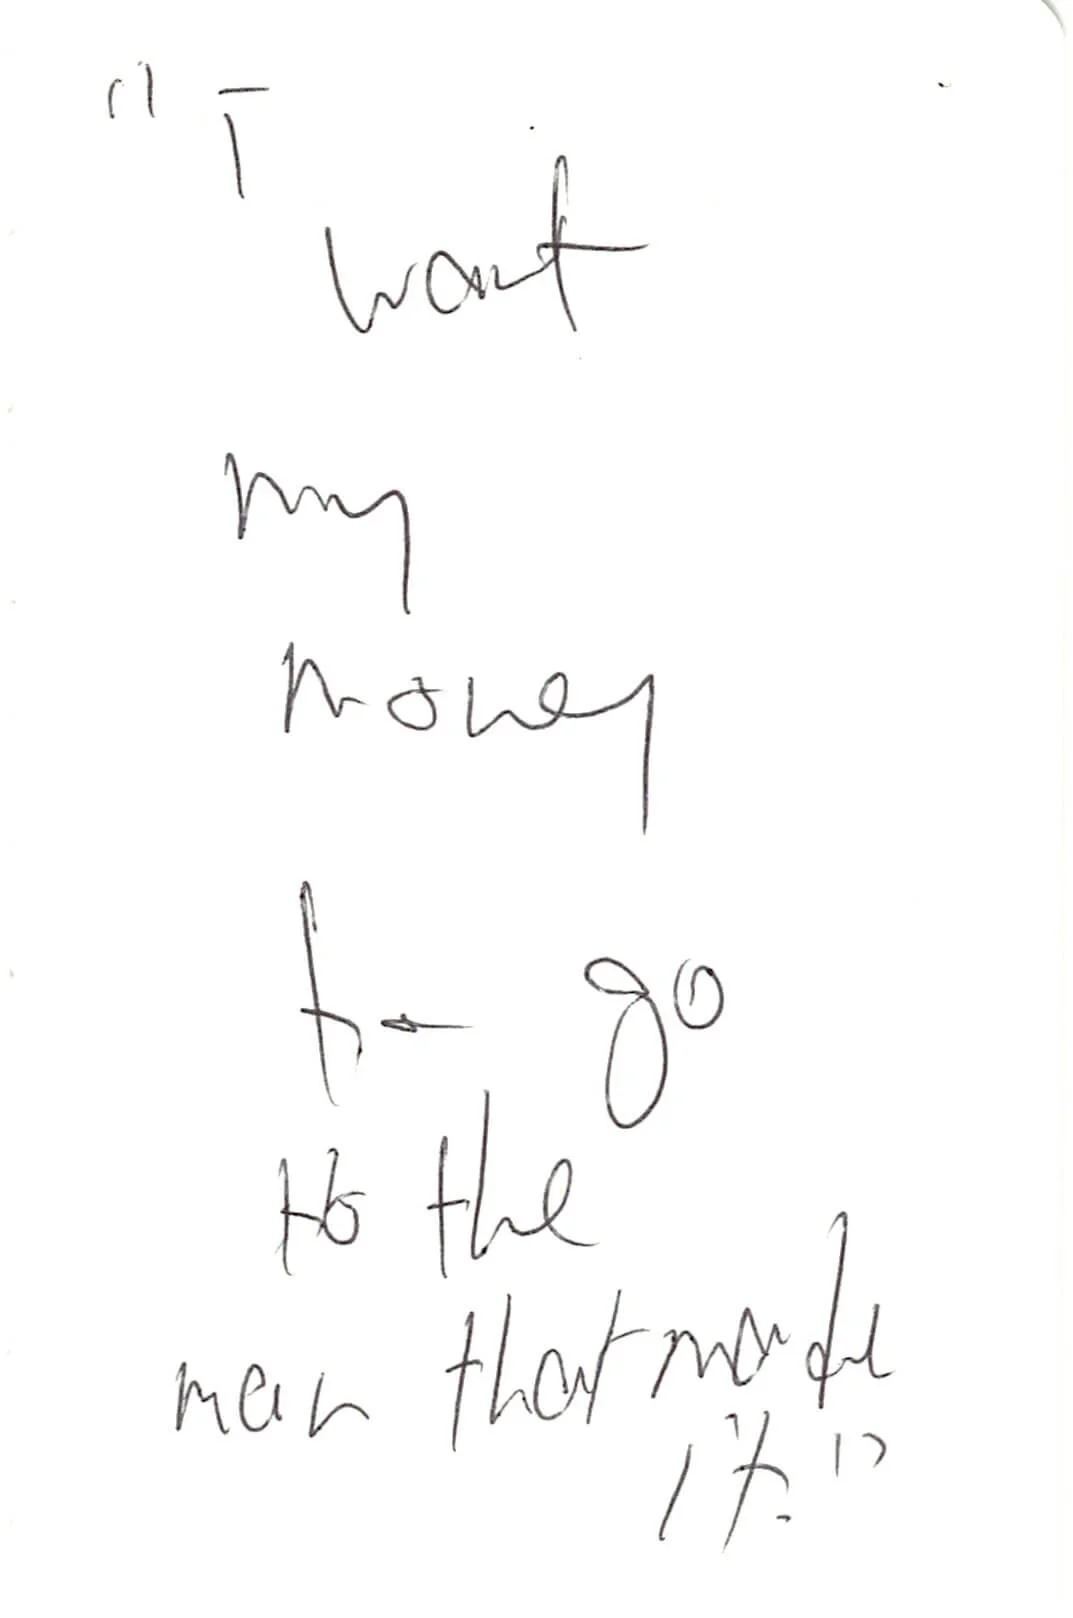 "I
want
my
money
to go
to the
man that made
it."